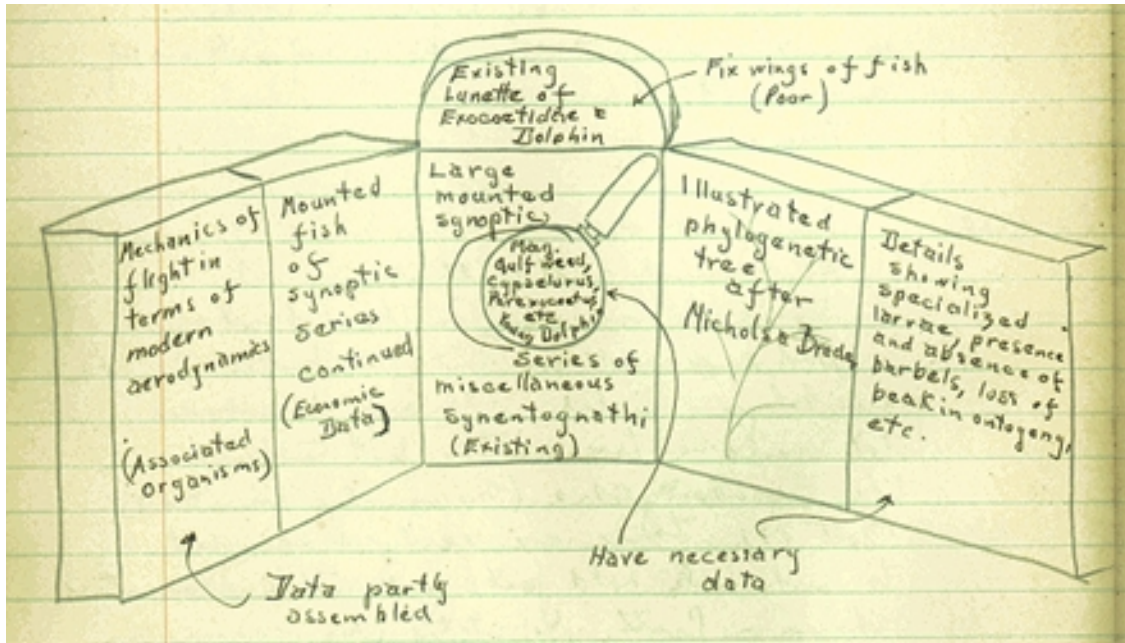 Existing
Lunette of
Exocoetidae &
Dolphin
Fix wings of fish
(Poor)
Mechanics of
flight in
terms of
modern
aerodynamics
(Associated
organisms)
Mounted
fish
of
synoptic
series
continued
(Economic
Data)
Large
mounted
synoptic
Man.
Gulf weed,
Cypselurus,
Parexocoetus,
etc
Young Dolphin
Series of
miscellaneous
synentognathi
(Existing)
Illustrated
phylogenetic
tree
after
Nichols & Breder
Details
showing
specialized
larvae, presence
and absence of
barbels, loss of
beak in ontogeny,
etc.
Data partly
assembled
Have necessary
data